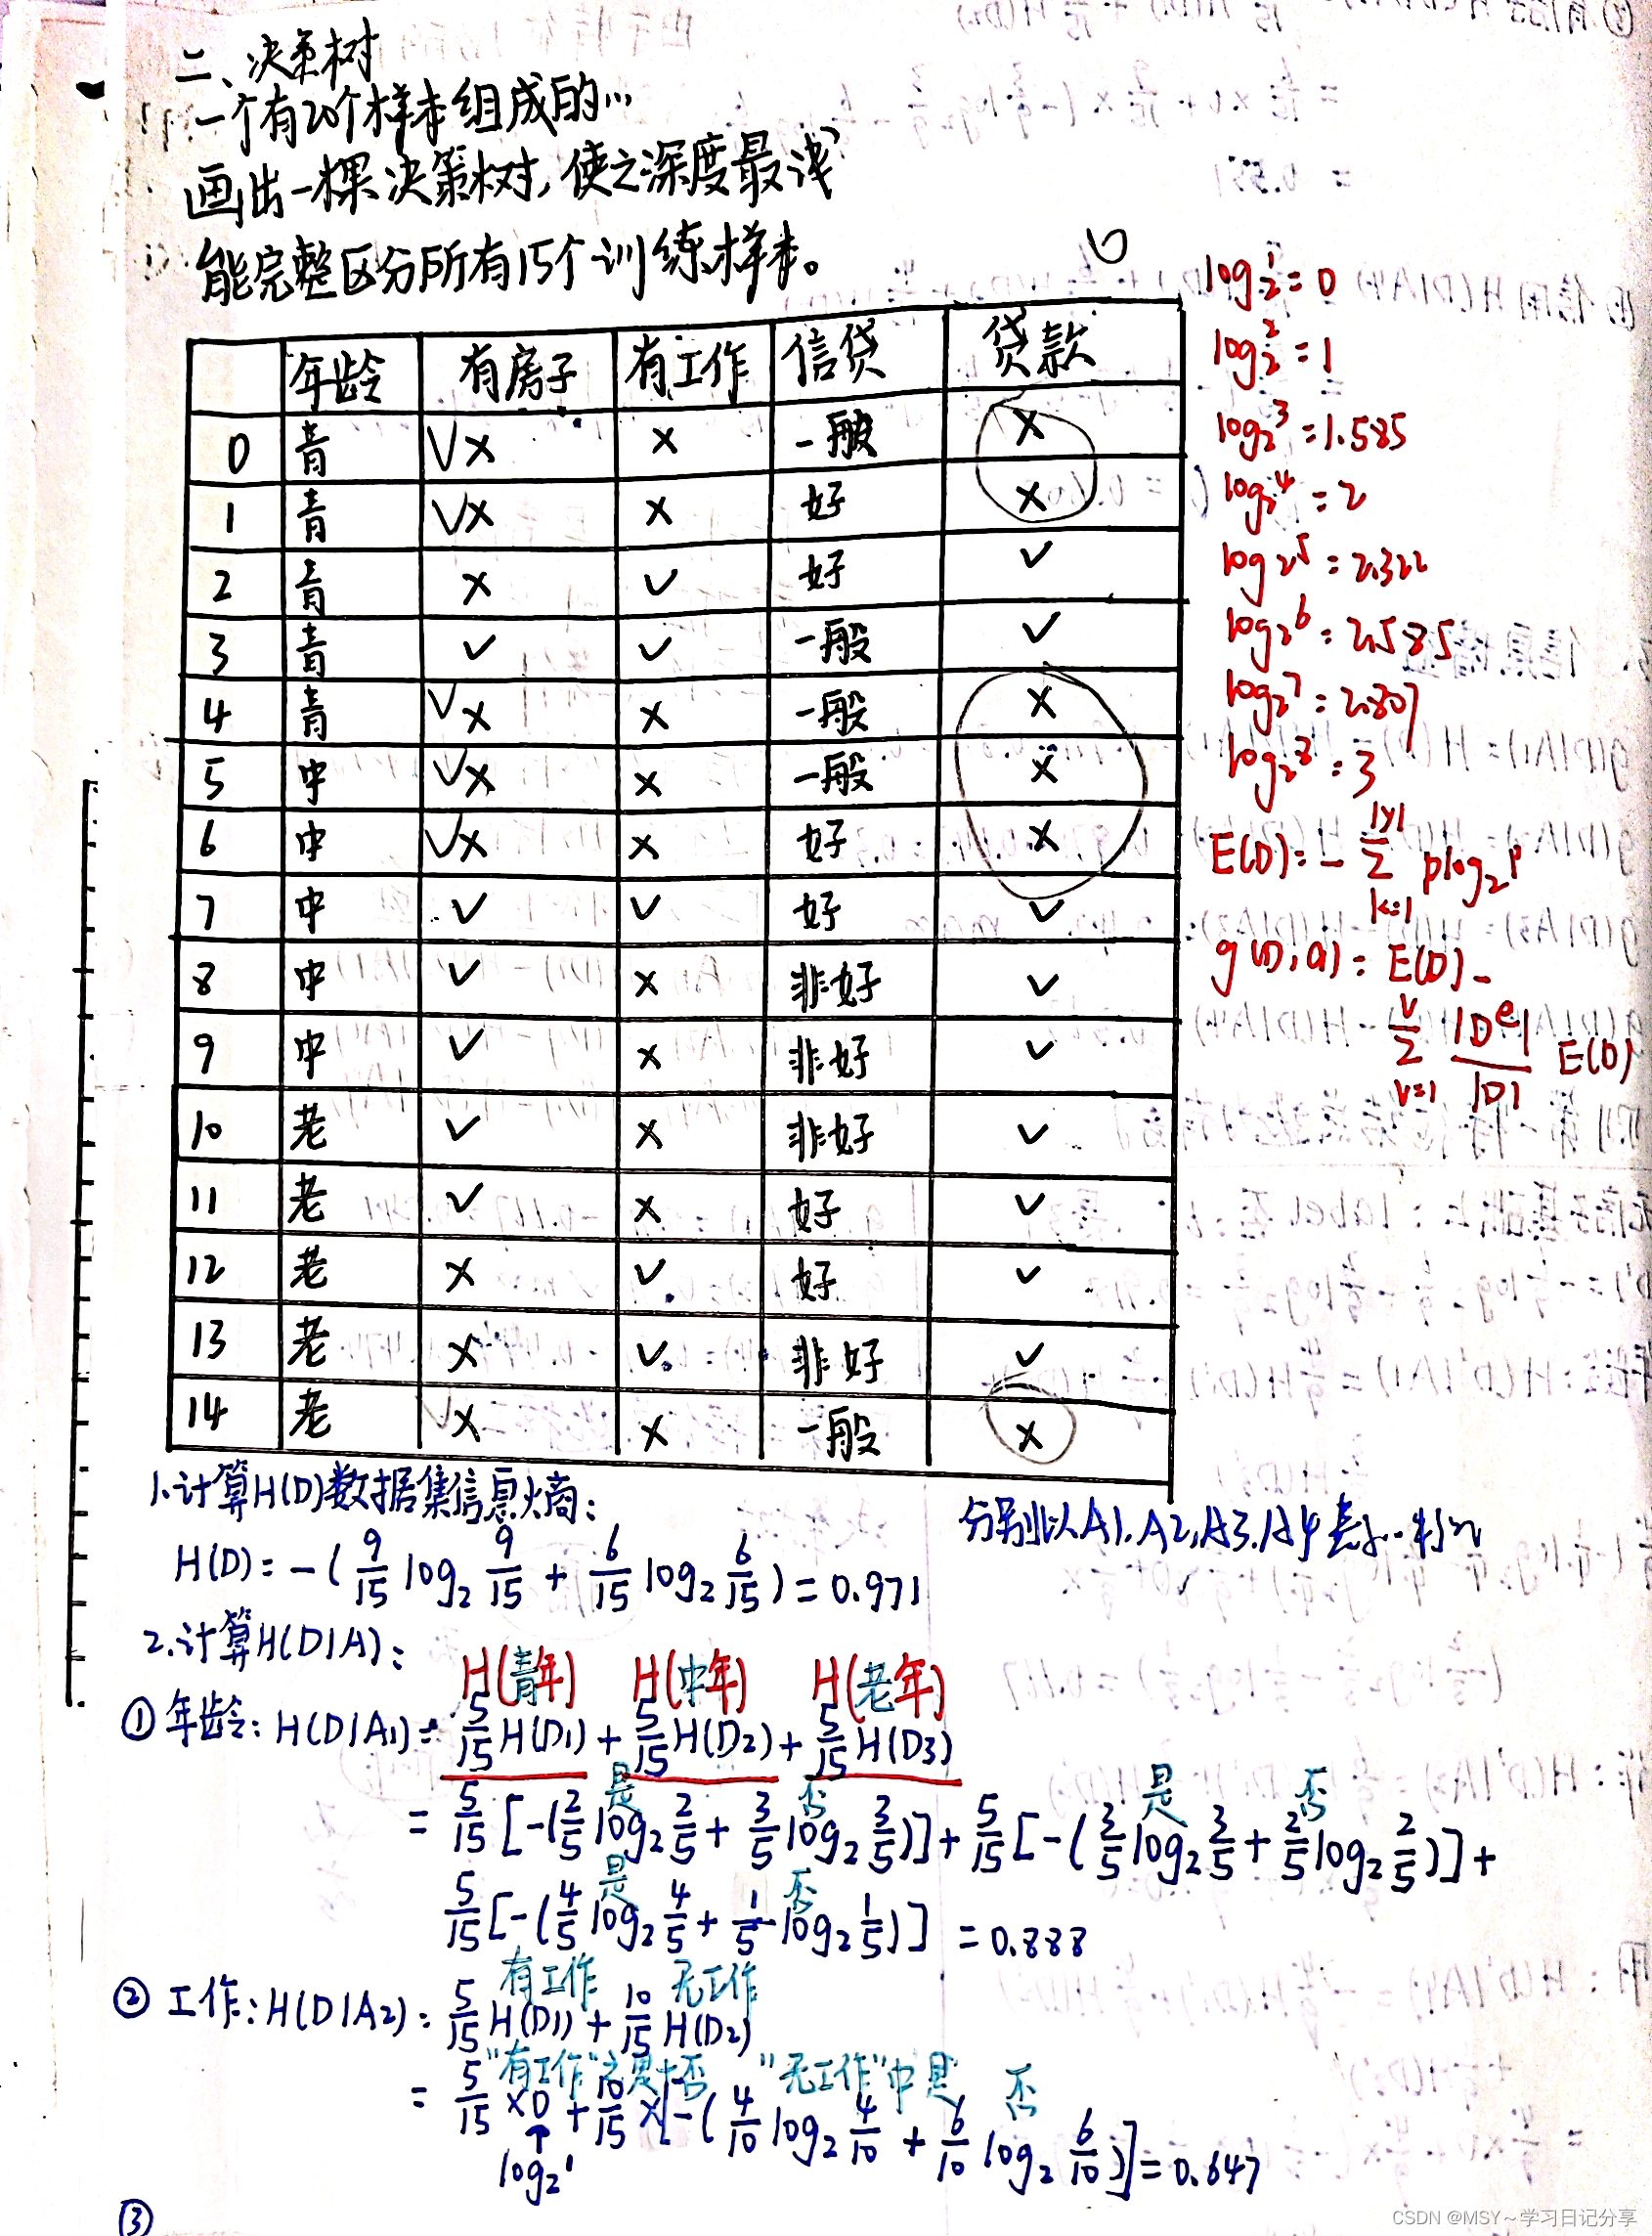 二、决策树
一个有20个样本组成的…
画出一棵决策树,使之深度最浅
能完整区分所有15个训练样本。
年龄 有房子 有工作 信贷 贷款
0 青 √× × 一般 ×
1 青 √× × 好 ×
2 青 × √ 好 √
3 青 √ √ 一般 √
4 青 √× × 一般 ×
5 中 √× × 一般 ×
6 中 √× × 好 ×
7 中 √ √ 好 √
8 中 √ × 非好 √
9 中 √ × 非好 √
10 老 √ × 非好 √
11 老 √ × 好 √
12 老 × √ 好 √
13 老 × √ 非好 √
14 老 √× × 一般 ×
log₂1=0
log₂2=1
log₂3=1.585
log₂4=2
log₂5=2.322
log₂6=2.585
log₂7=2.807
log₂8=3
E(D)=-Σ|y| k=1 plog₂P
g(D,a)=E(D)-
Σ V v=1 |Dᵉ|/|D| E(D)
1.计算H(D)数据集信息熵:
分别以A1,A2,A3,A4表示
H(D)=-(9/15 log₂ 9/15 + 6/15 log₂ 6/15)=0.971
2.计算H(D|A):
H(青年) H(中年) H(老年)
①年龄:H(D|A₁)=5/15 H(D₁)+5/15 H(D₂)+5/15 H(D₃)
是 否 是 否
=5/15[-(2/5 log₂ 2/5 + 3/5 log₂ 3/5)]+5/15[-(3/5 log₂ 3/5 + 2/5 log₂ 2/5)]+
是 否
5/15[-(4/5 log₂ 4/5 + 1/5 log₂ 1/5)]=0.888
有工作 无工作
②工作:H(D|A₂)=5/15 H(D₁)+10/15 H(D₂)
"有工作" 否 "无工作"中是 否
=5/15×0+10/15×[-(4/10 log₂ 4/10 + 6/10 log₂ 6/10)]=0.647
↑
log₂1
③
CSDN @MSY~学习日记分享